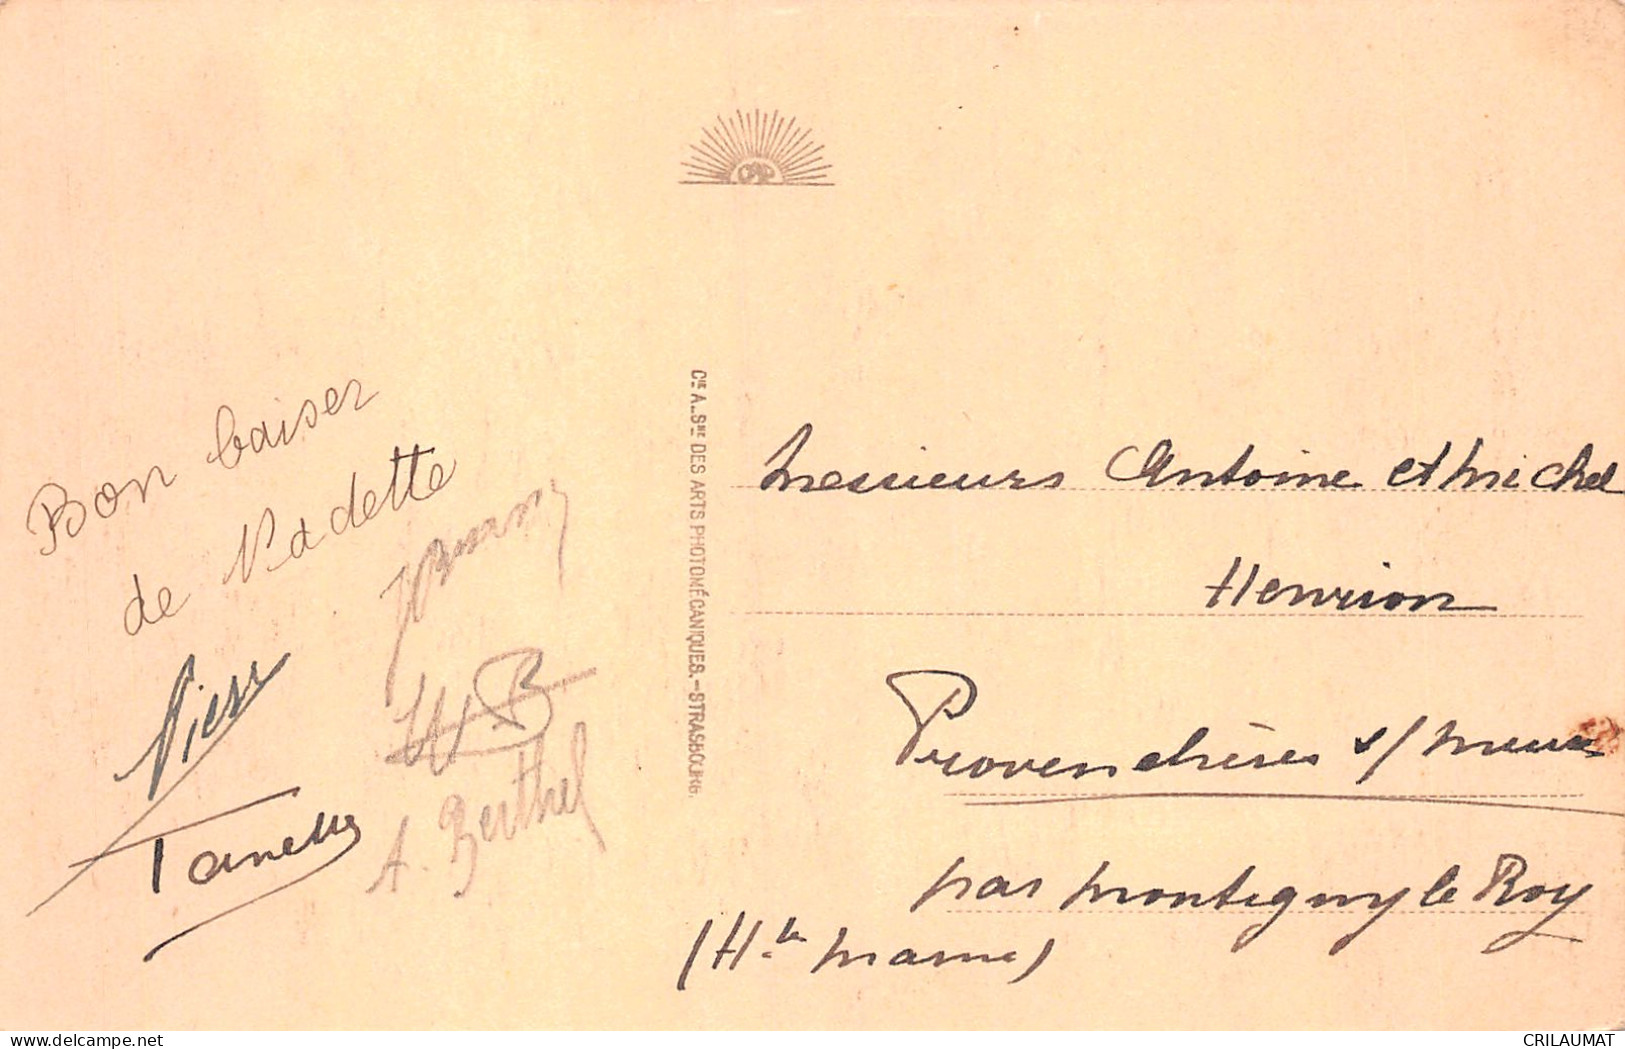 Bon baiser
de Nadette
A. Berthel
CIE A. SNE DES ARTS PHOTOMÉCANIQUES.-STRASBOURG.
Messieurs Antoine et Michel
Henrion
Provenchères s/ Meuse
par Montigny le Roy
(Hte Marne)
delcampe.net
CRILAUMAT